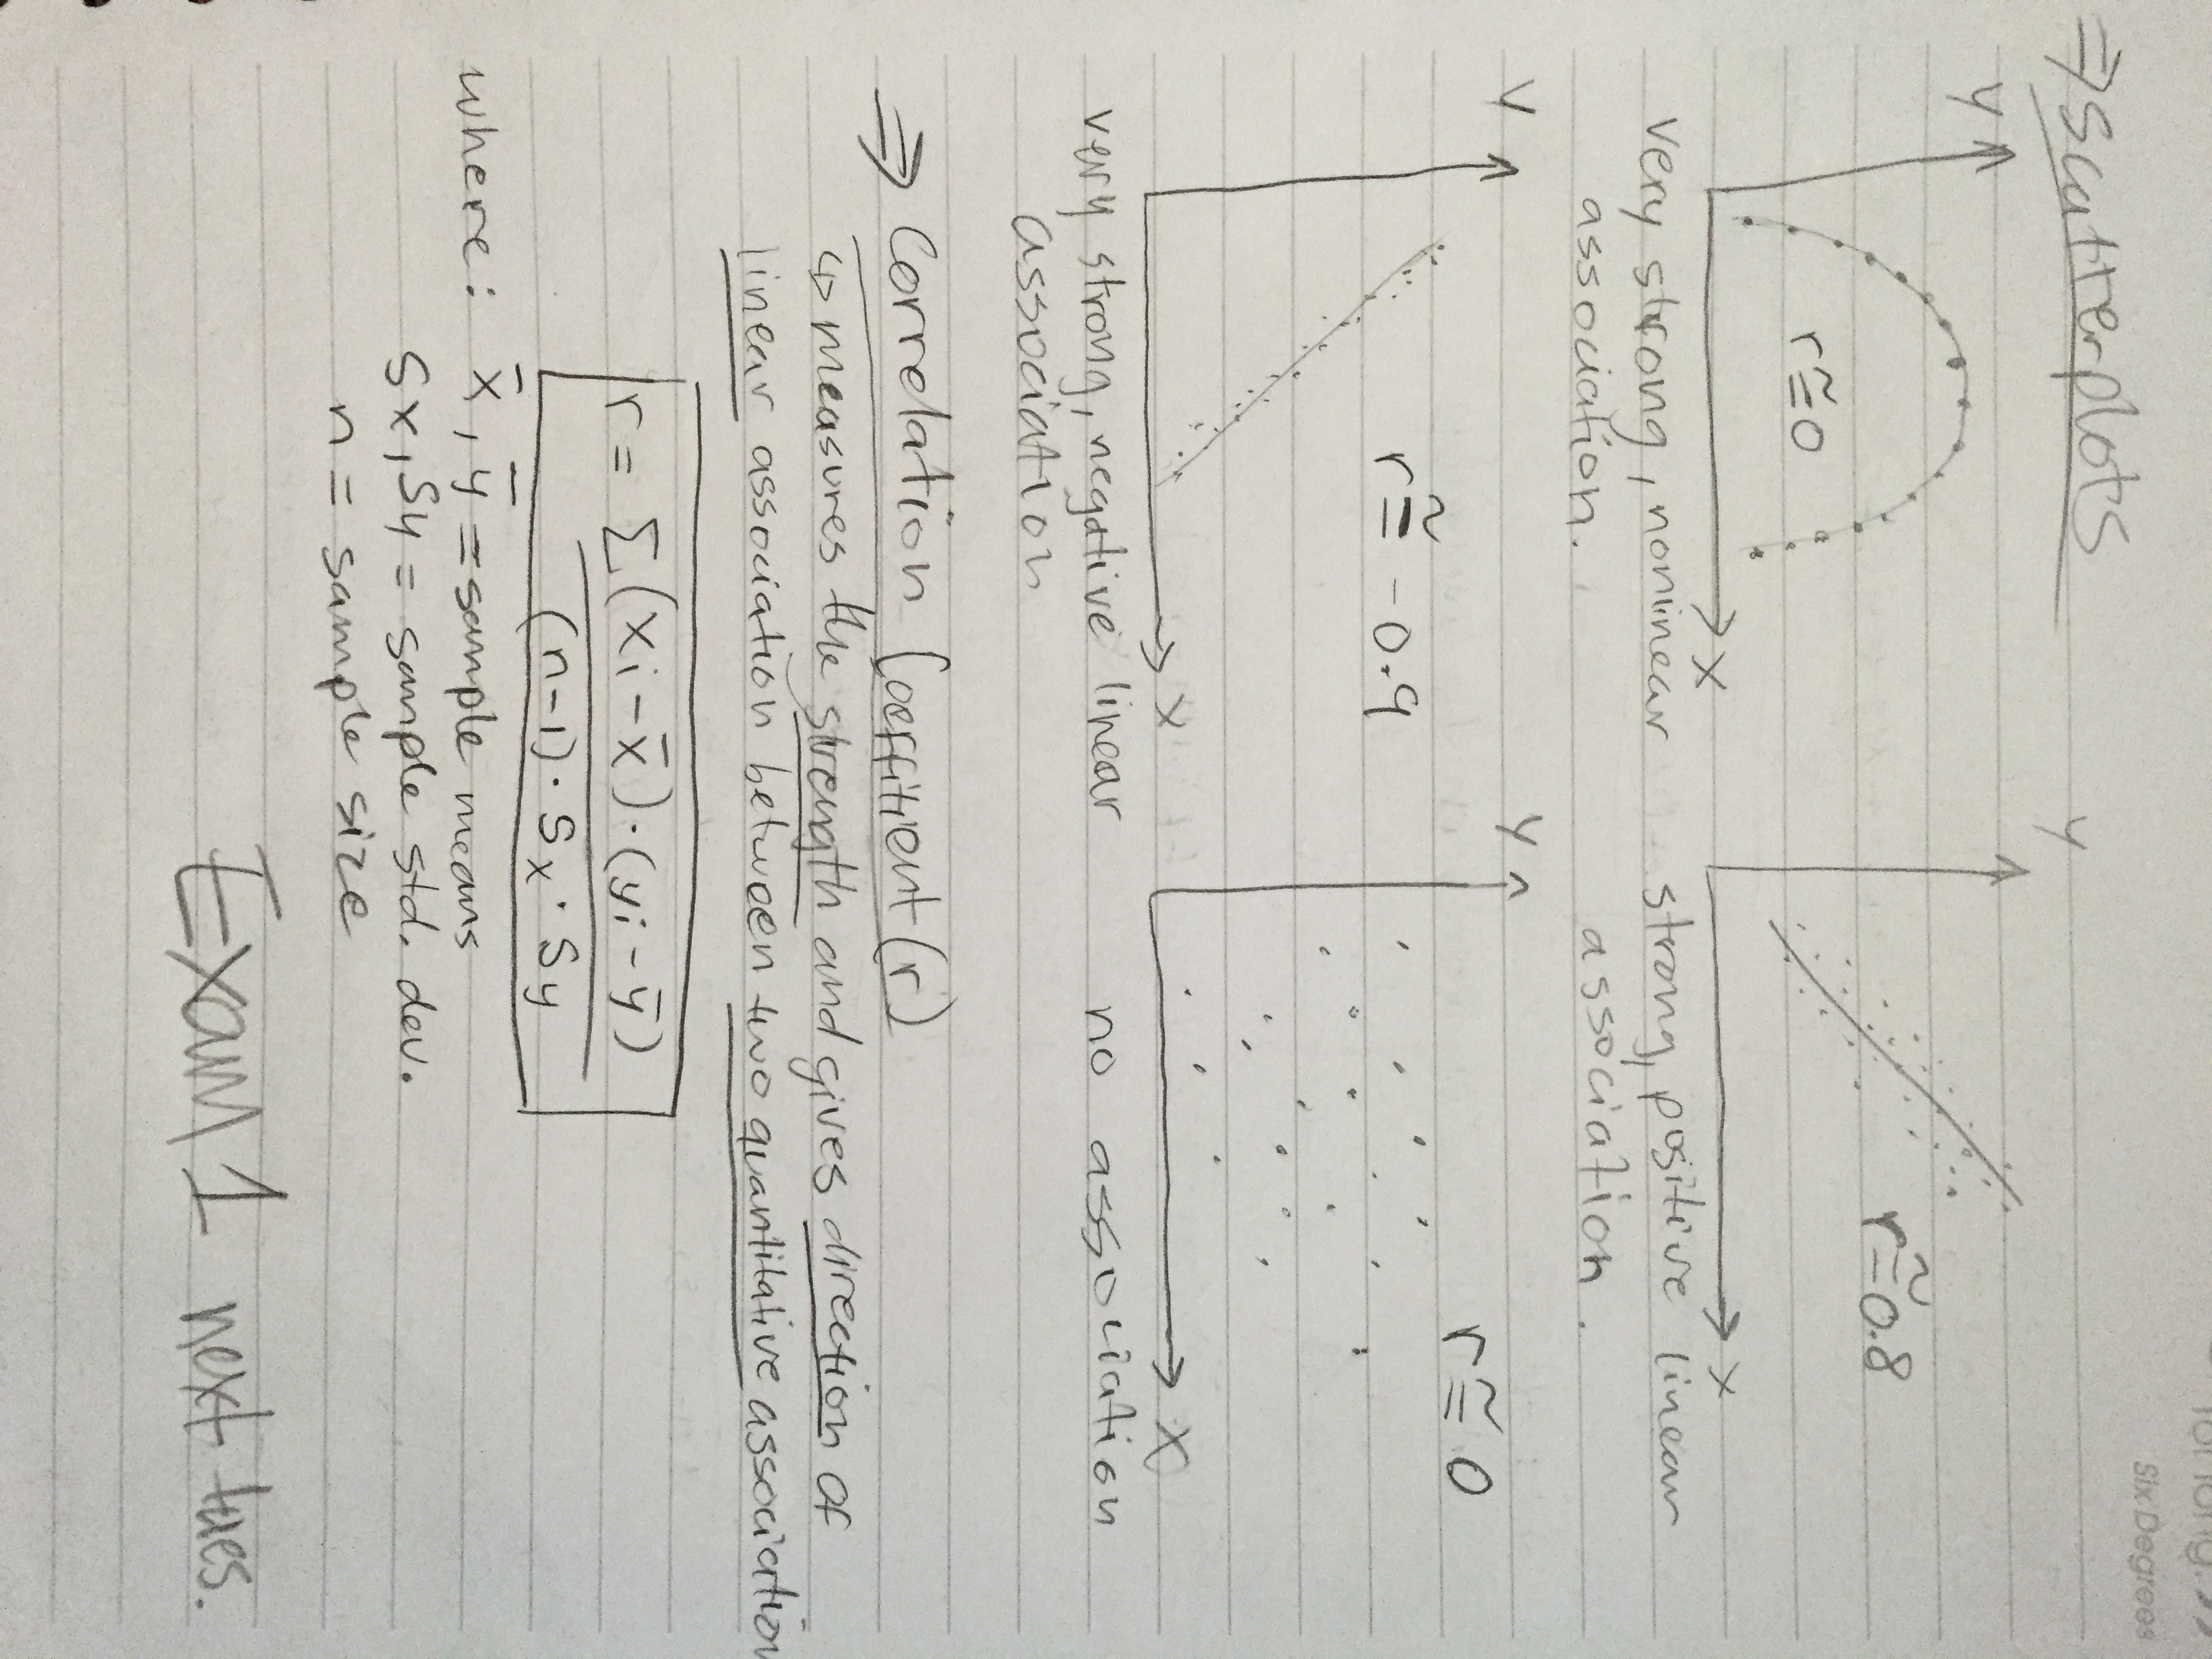 ⇒ Scatterplots
y
r≅0
x
very strong, nonlinear
association.
y
r≅0.8
x
strong, positive linear
association.
y
r≅ -0.9
x
very strong, negative linear
association
y
r≅0
x
no association
⇒ Correlation Coeffitient (r)
↳ measures the strength and gives direction of
linear association between two quantitative association
r = Σ(xi - x̄)·(yi - ȳ)
(n-1)·Sx·Sy
where: x̄, ȳ = sample means
Sx, Sy = sample std. dev.
n = sample size
Exam 1 next tues.
SixDegrees